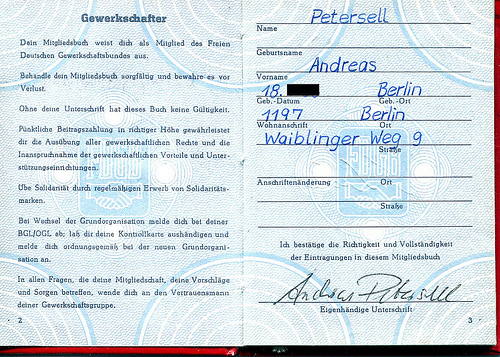 Gewerkschafter
Dein Mitgliedsbuch weist dich als Mitglied des Freien
Deutschen Gewerkschaftsbundes aus.
Behandle dein Mitgliedsbuch sorgfältig und bewahre es vor
Verlust.
Ohne deine Unterschrift hat dieses Buch keine Gültigkeit.
Pünktliche Beitragszahlung in richtiger Höhe gewährleistet
dir die Ausübung aller gewerkschaftlichen Rechte und die
Inanspruchnahme der gewerkschaftlichen Vorteile und Unter-
stützungseinrichtungen.
Übe Solidarität durch regelmäßigen Erwerb von Solidaritäts-
marken.
Bei Wechsel der Grundorganisation melde dich bei deiner
BGL/OGL ab; laß dir deine Kontrollkarte aushändigen und
melde dich ordnungsgemäß bei der neuen Grundorgani-
sation an.
In allen Fragen, die deine Mitgliedschaft, deine Vorschläge
und Sorgen betreffen, wende dich an den Vertrauensmann
deiner Gewerkschaftsgruppe.
2
Petersell
Name
Geburtsname
Andreas
Vorname
18. Berlin
Geb.-Datum Geb.-Ort
1197 Berlin
Wohnanschrift Ort
Waiblinger Weg 9
Straße
Anschriftenänderung Ort
Straße
Ich bestätige die Richtigkeit und Vollständigkeit
der Eintragungen in diesem Mitgliedsbuch
Andreas Petersell
Eigenhändige Unterschrift
3
FDGB
FDGB